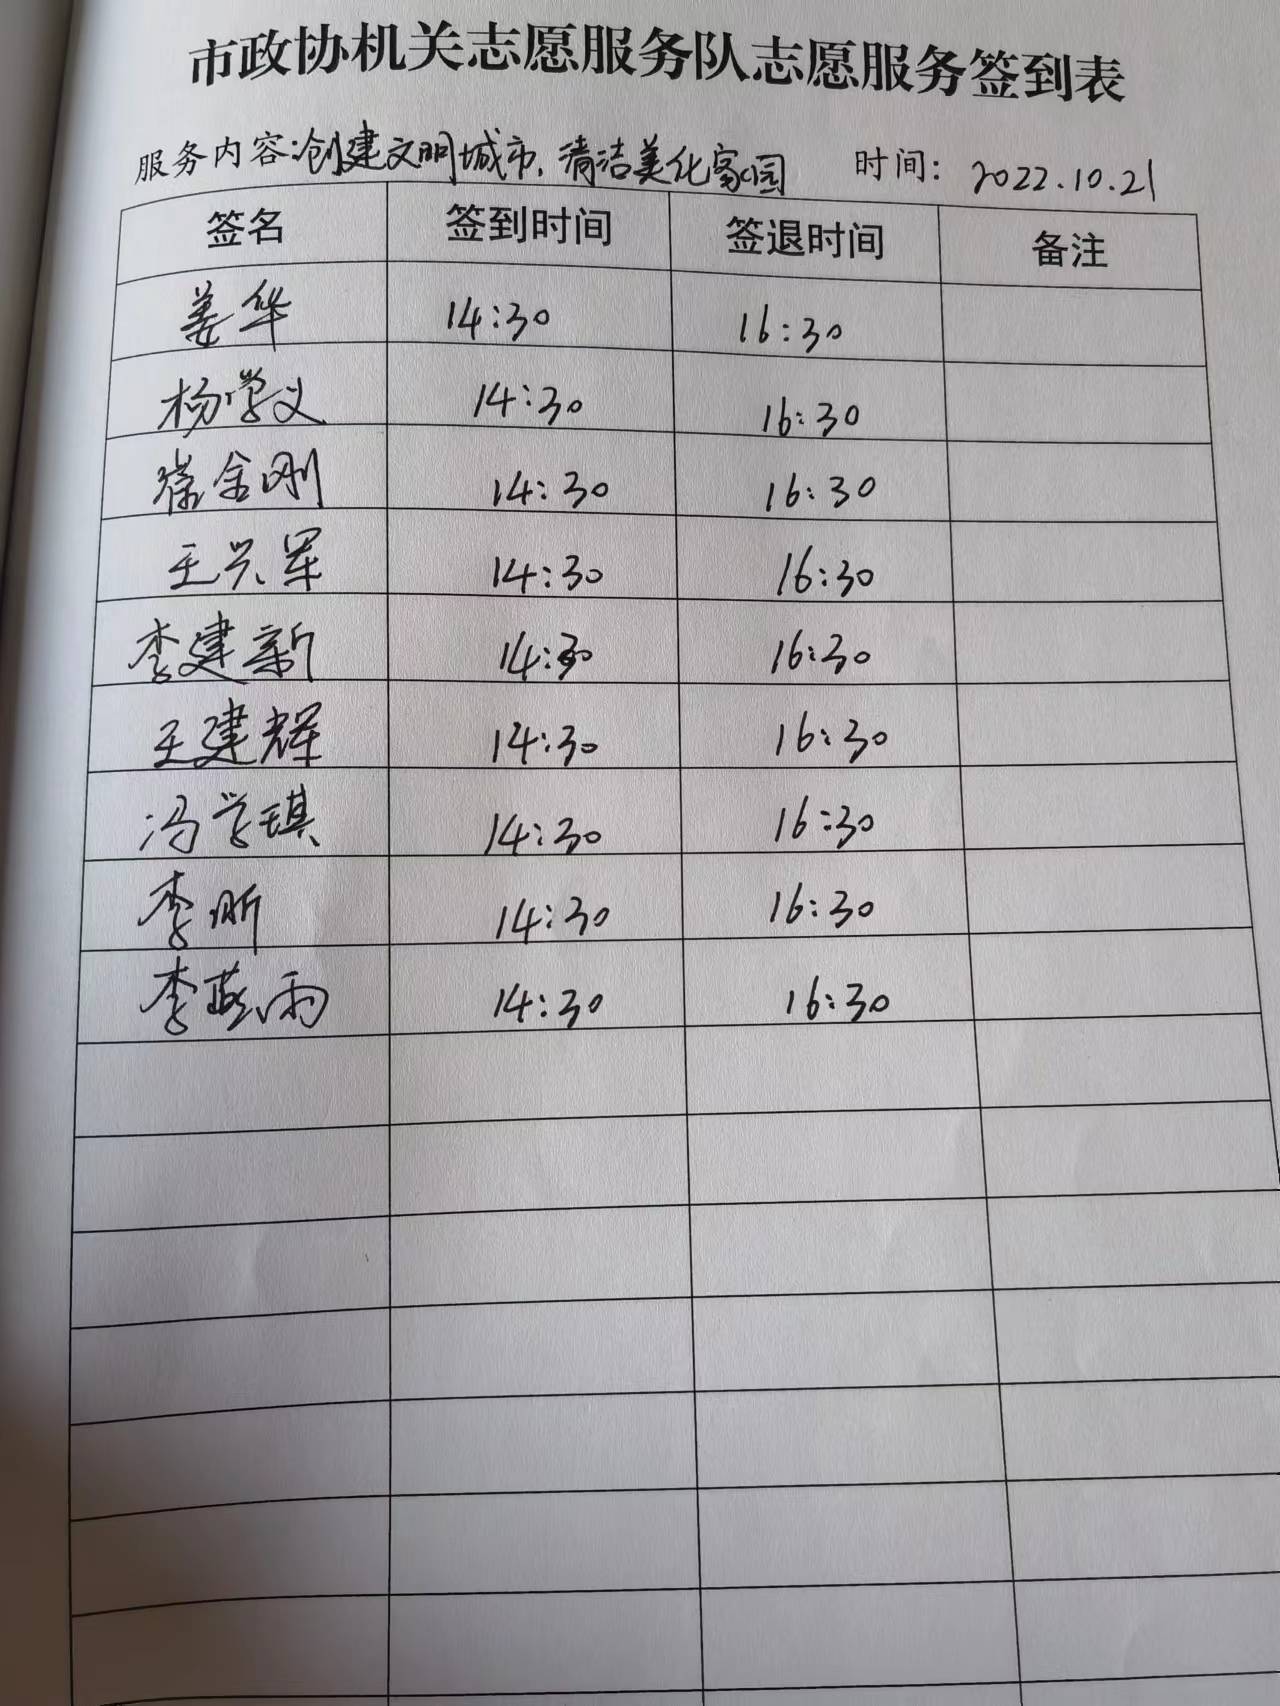 市政协机关志愿服务队志愿服务签到表
服务内容:创建文明城市,清洁美化家园 时间: 2022.10.21
签名 签到时间 签退时间 备注
姜华 14:30 16:30
杨学义 14:30 16:30
金刚 14:30 16:30
王兴军 14:30 16:30
李建新 14:30 16:30
王建辉 14:30 16:30
冯学琪 14:30 16:30
李昕 14:30 16:30
李燕雨 14:30 16:30